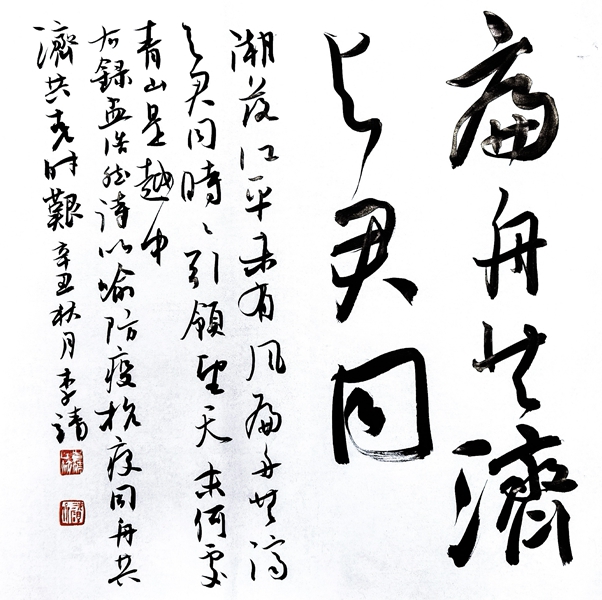 扁舟共濟
与君同
潮落江平未有风扁舟共济
与君同時〻引領望天末何处
青山是越中
右録孟浩然詩以喻防疫抗疫同舟共
濟共克时艱辛丑秋月李靖